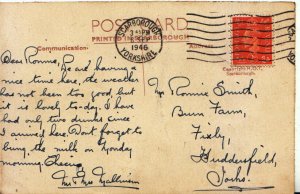 POST CARD
PRINTED IN SCARBOROUGH
Communication
SCARBOROUGH
1946
YORKSHIRE
Dear Ronnie, We are having a
nice time here, the weather
has not been too good, but
it is lovely to-day. I have
had only two drinks since
I arrived here. Don't forget to
bring the milk on Monday
morning. Cheerio
Mr & Mrs
Mr Ronnie Smith,
Farm,
Fixby,
Huddersfield
Yorks.